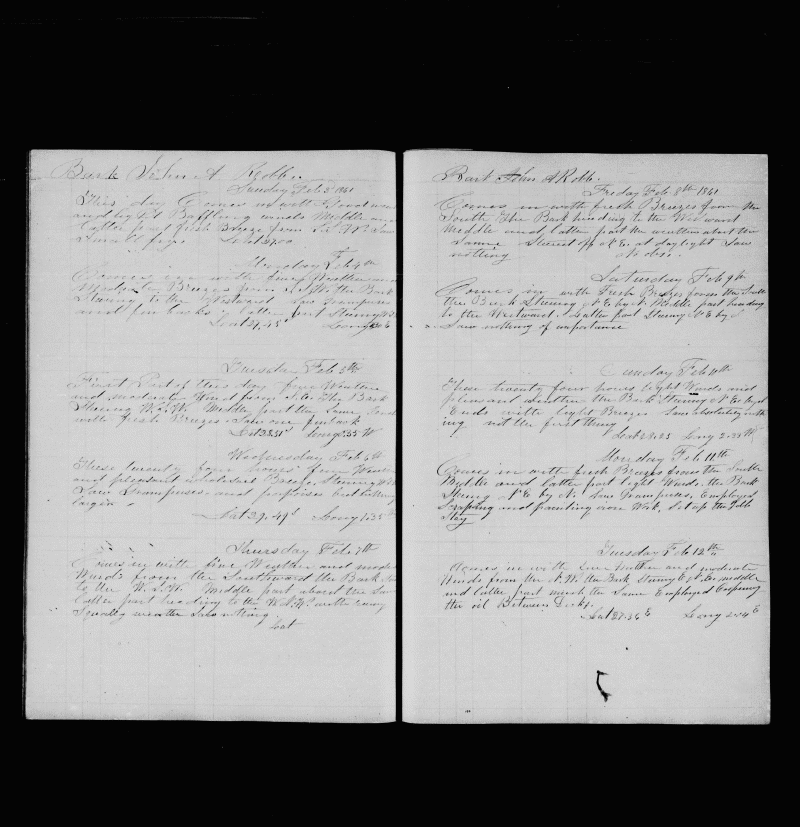 Bark John A Robb
Sunday Feb 3th 1861
This day Comes in with Good weather
and light Baffling winds Middle and
latter part fresh Breeze from S. W. Saw
Small fry Lat 29.00
Monday Feb 4th
Comes in with fine Weather and
Moderate Breezes from the Bark
Steering to the Westward Saw Grampuses
and fin backs latter part Steering
Lat 29.45 Long
Tuesday Feb 5th
First Part of this day fine Weather
and moderate Wind from the Bark
Steering W.S.W. Middle part the Same Ends
with fresh Breezes Saw one finback
Lat Long
Wednesday Feb 6th
These twenty four hours fine Weather
and pleasant Breeze Steering
Saw Grampuses and porpoises but nothing
larger
Lat 29.49 Long
Thursday Feb 7th
Comes in with fine Weather and moderate
Winds from the Southward the Bark
to the W.S.W. Middle part about the Same
latter part heading to the W.S.W. with
Squally weather Saw nothing
Lat
Bark John A Robb.
Friday Feb 8th 1861
Comes in with fresh Breezes from the
South the Bark heading to the Westward
Middle and latter part the weather about the
Same Steered off N.E. at daylight Saw
nothing No obs.
Saturday Feb 9th
Comes in with Fresh Breezes from the South
the Bark Steering N E by N Middle part heading
to the Westward Latter part Steering N E by
Saw nothing of importance
Sunday Feb 10th
These twenty four hours light Winds and
pleasant weather the Bark Steering N.E.
Ends with light Breezes Saw absolutely noth
ing not the first thing
Lat 28.25 Long
Monday Feb 11th
Comes in with fresh Breezes from the South
Middle and latter part light Winds. the Bark
Steering N E by N. Saw Grampuses, Employed
Scraping and painting iron Work, Set up the Jibb
Stay
Tuesday Feb 12th
Comes in with fine weather and moderate
Winds from the N.W. the Bark Steering middle
and latter part much the Same Employed
the oil Between Decks.
Lat 27-36 Long